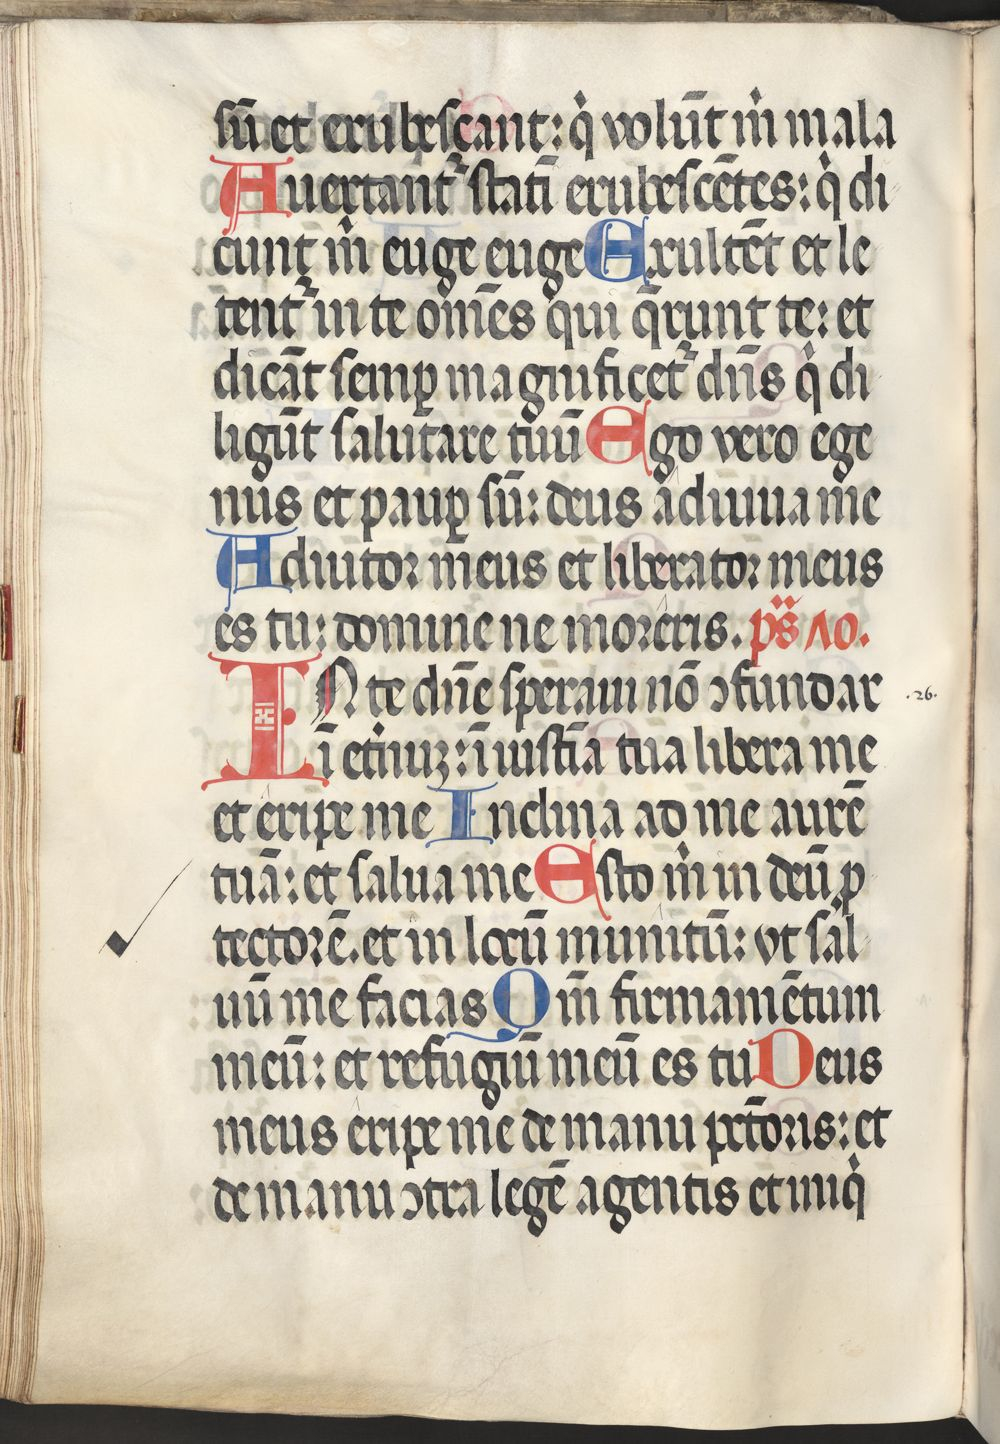 sū. et erubescant: q̇ volūt m̄ mala
Auertant᷑ stati᷑ erubescētes: q̇ di
cunt m̄ euge euge Exultēt et le
tent᷑ in te om̄es qui q̄runt te: et
dicāt semꝑ magnificet᷑ dn̄s q̇ di
ligūt salutare tuū Ego vero ege
nus et pauꝑ sū: deus adiuua me
Adiutoꝛ meus et liberatoꝛ meus
es tu: domine ne moꝛeris. ps̄ ɅO.
IN te dn̄e speraui nō ↄfundar
ī et̄nuȝ: ī iustīa tua libera me
et eripe me Inclina ad me aurē
tuā: et salua me Esto m̄ in deū ꝓ
tectoꝛē. et in locū munitū: vt sal
uū me facias Qm̄ firmamētum
meū: et refugiū meū es tu Deus
meus eripe me de manu pctōꝛis: et
de manu ↄtra legē agentis et iniq̇
.26.